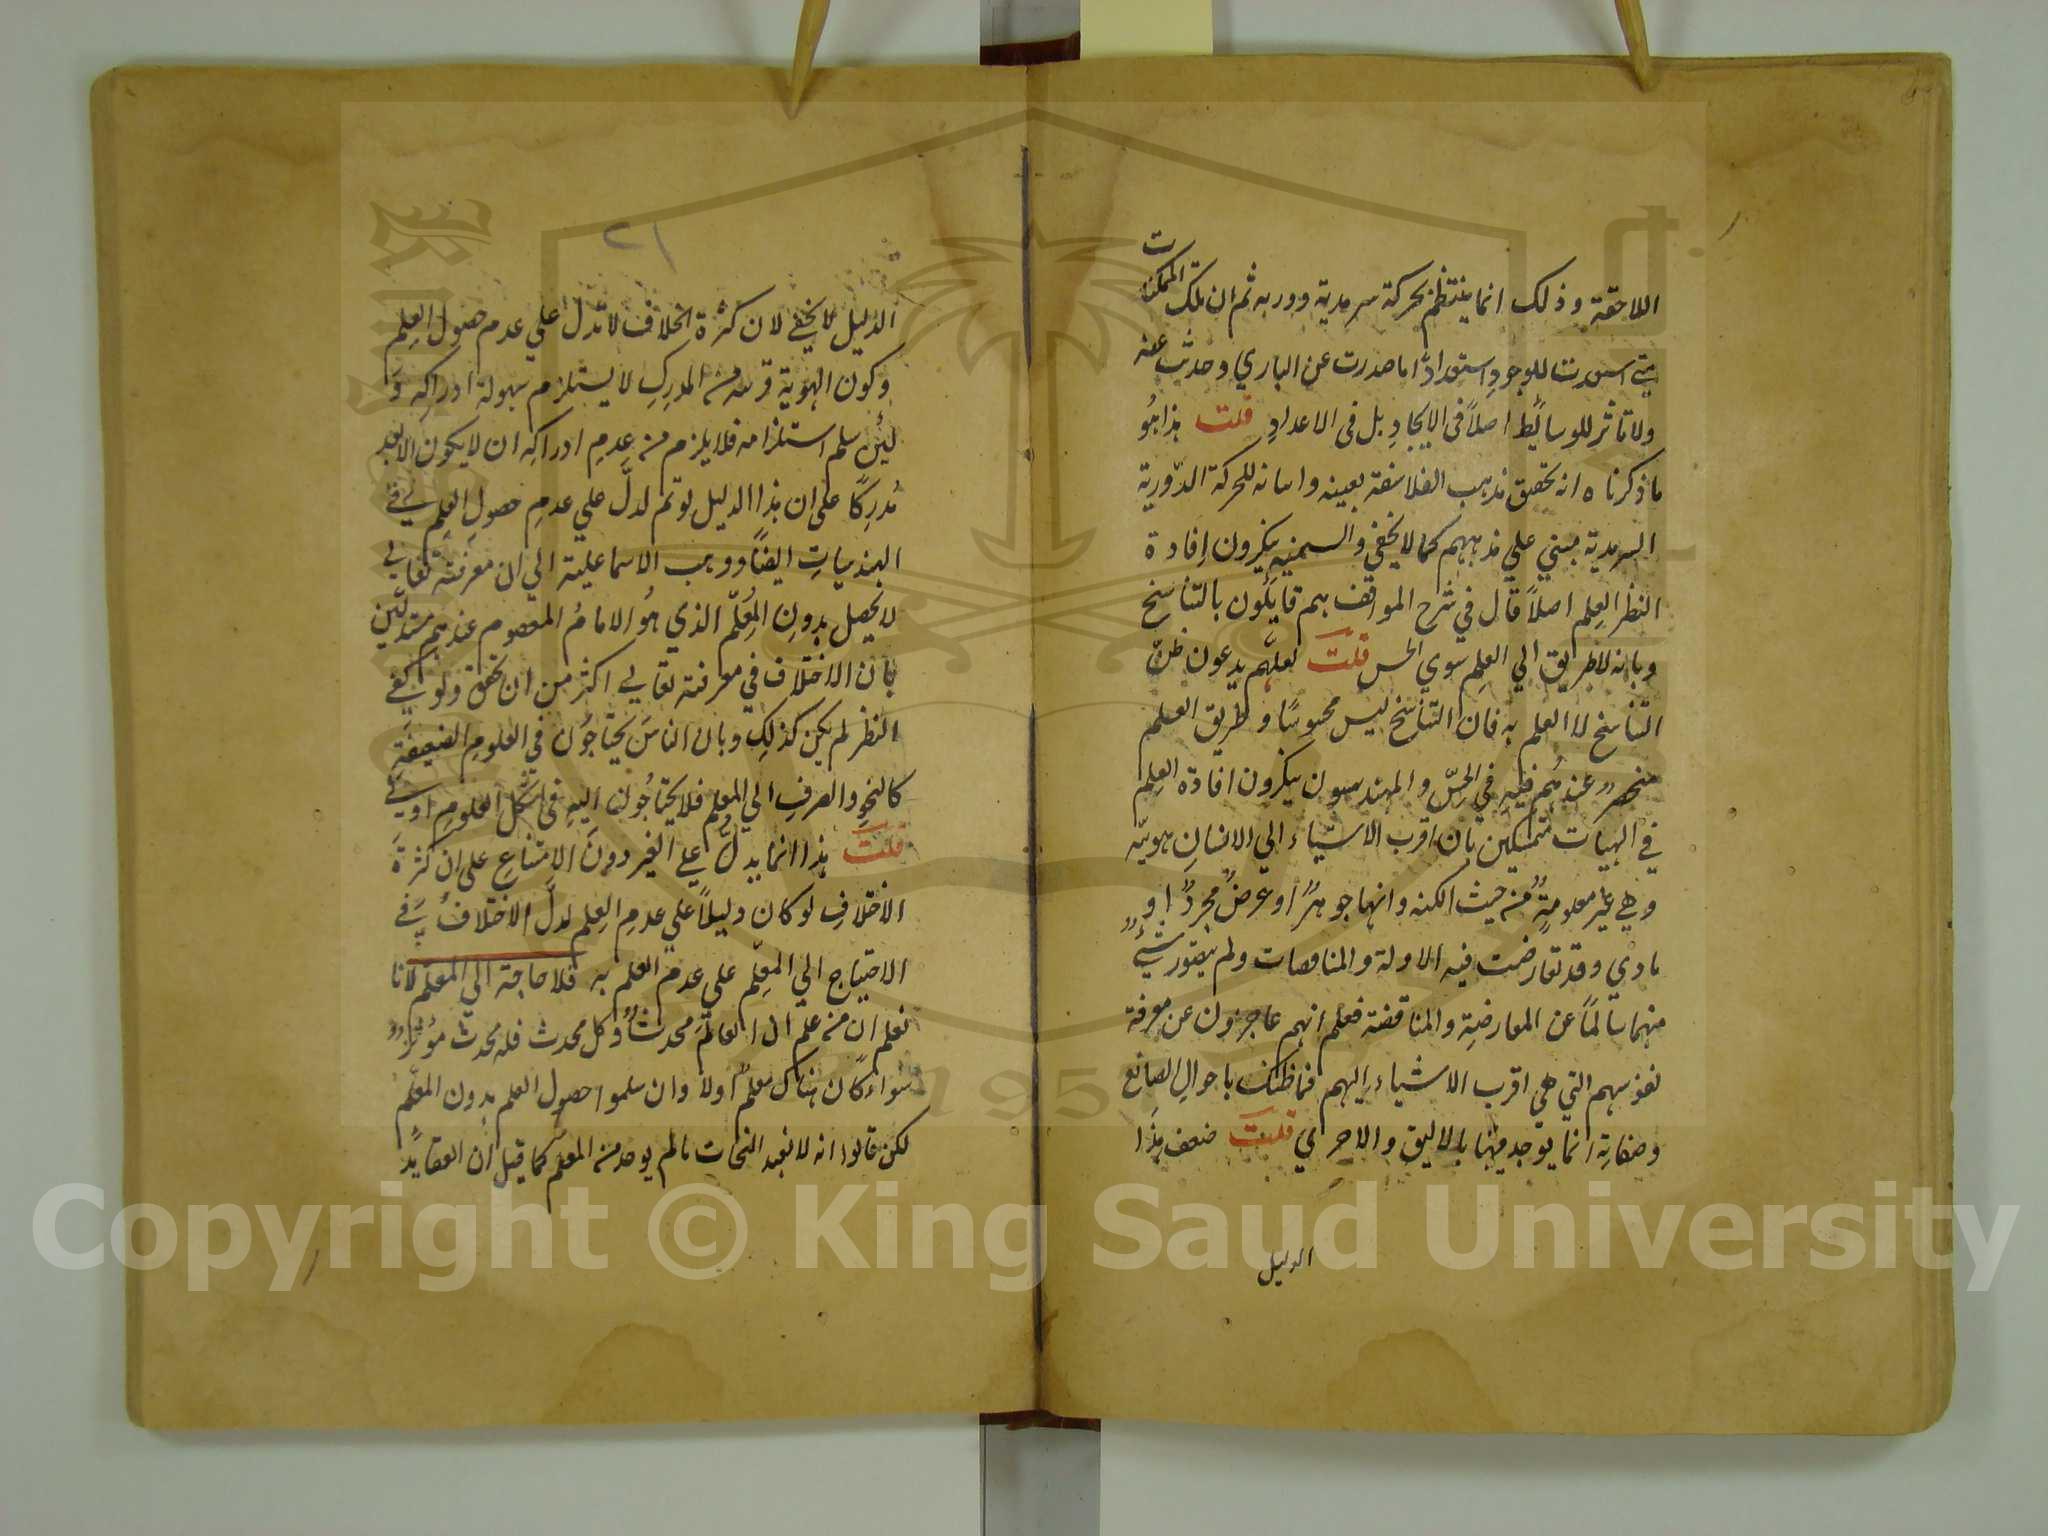 اللاحقة وذلك انما ينتظم بحركة سرمدية دورية ثم ان تلك الممكنات
متي استعدت للوجودِ استعدادًا ما صدرت عن الباري وحدثت عنه
ولا تاثر للوسائط اصلاً في الايجادِ بل في الاعدادِ قلت هذا هُو
ما ذكرناه انه تحقيق مذهب الفلاسفة بعينه واما نه للحركة الدّورية
السرمدية مبني علي مذهبهم كما لا يخفي والسمنيه ينكرون اِفادة
النظر العِلم اصلاً قال في شرح المواقف هم قايلون بالتناسخ
وبانه لا طريق الي العِلم سوي الحس قلت لعلّهم يدعون ظنّ
التّناسخ لا العلم به فان التناسخ ليس محسوسًا وطريق العلم
منحصر عندهُم فيهِ في الحِسّ والمهندسون ينكرون افادة العِلم
في الهيات متمسكين بان اقرب الاشياء الي الانسانِ هويته
وهي غير معلومةٍ من حيث الكنه وانها جوهرٌ او عرضٌ مجردٌ او
مادي وقد تعارضت فيه الادلة والمناقضات ولم يتقرر شيءٌ
منهما سالمًا عن المعارضةِ والمناقضة فعلم انهم عاجزون عن معرفة
نفوسهم التي هي اقرب الاشياء اليهم فما ظنك باحوال الصانع
وصفاتِه انما يوجد منها بالاليق والاحري قلت ضعف هذا
الدليل
٢١
الدليل لا يخفي لان كثرة الخلاف لا تدل علي عدم حصول العِلم
وكون الهوية قريبة من المدرِكِ لا يستلزم سهولة ادراكِه وَ
لئن سلم استلزامه فلا يلزم من عدمِ ادراكِه ان لا يكون الابعد
مُدرِكًا على ان هذا الدليل لو تم لدلَّ علي عدمِ حصولِ العِلم في
الهندسياتِ ايضًا وذهب الاسماعلية الي ان معرفته تعالي
لا يحصل بدونِ المُعلّم الذي هُو الامامُ المعصوم عندهم مستدلّين
بان الاختلاف في معرفته تعالي اكثر من ان تحقق ولو كفي
النظر لم يكن كذلكِ وبان الناسَ يحتاجُون في العلومِ الضعيفةِ
كالنحوِ والصرفِ الي المعلم فلا يحتاجُون اليهِ في اشكل العلومِ اولي
قلت هذا انما يدلُّ علي العُسر دونَ الامتناعِ على ان كثرةَ
الاختلافِ لو كان دليلاً علي عدمِ العِلم لدلَّ الاختلافُ في
الاحتياج الي المعِلّم علي عدمِ العلم به فلا حاجة الي المعلّم لانا
نعلم ان من علم ان العالَمَ محدثٌ وكل محدث فله محدث مؤثرٌ
سواء كان هناك معلمٌ اولا وان سلموا حصولَ العلم بدون المعلّم
لكن قالوا انه لا نفيد النجات ما لم يوحد من المعلّم كما قيل ان العقايدَ
Copyright © King Saud University